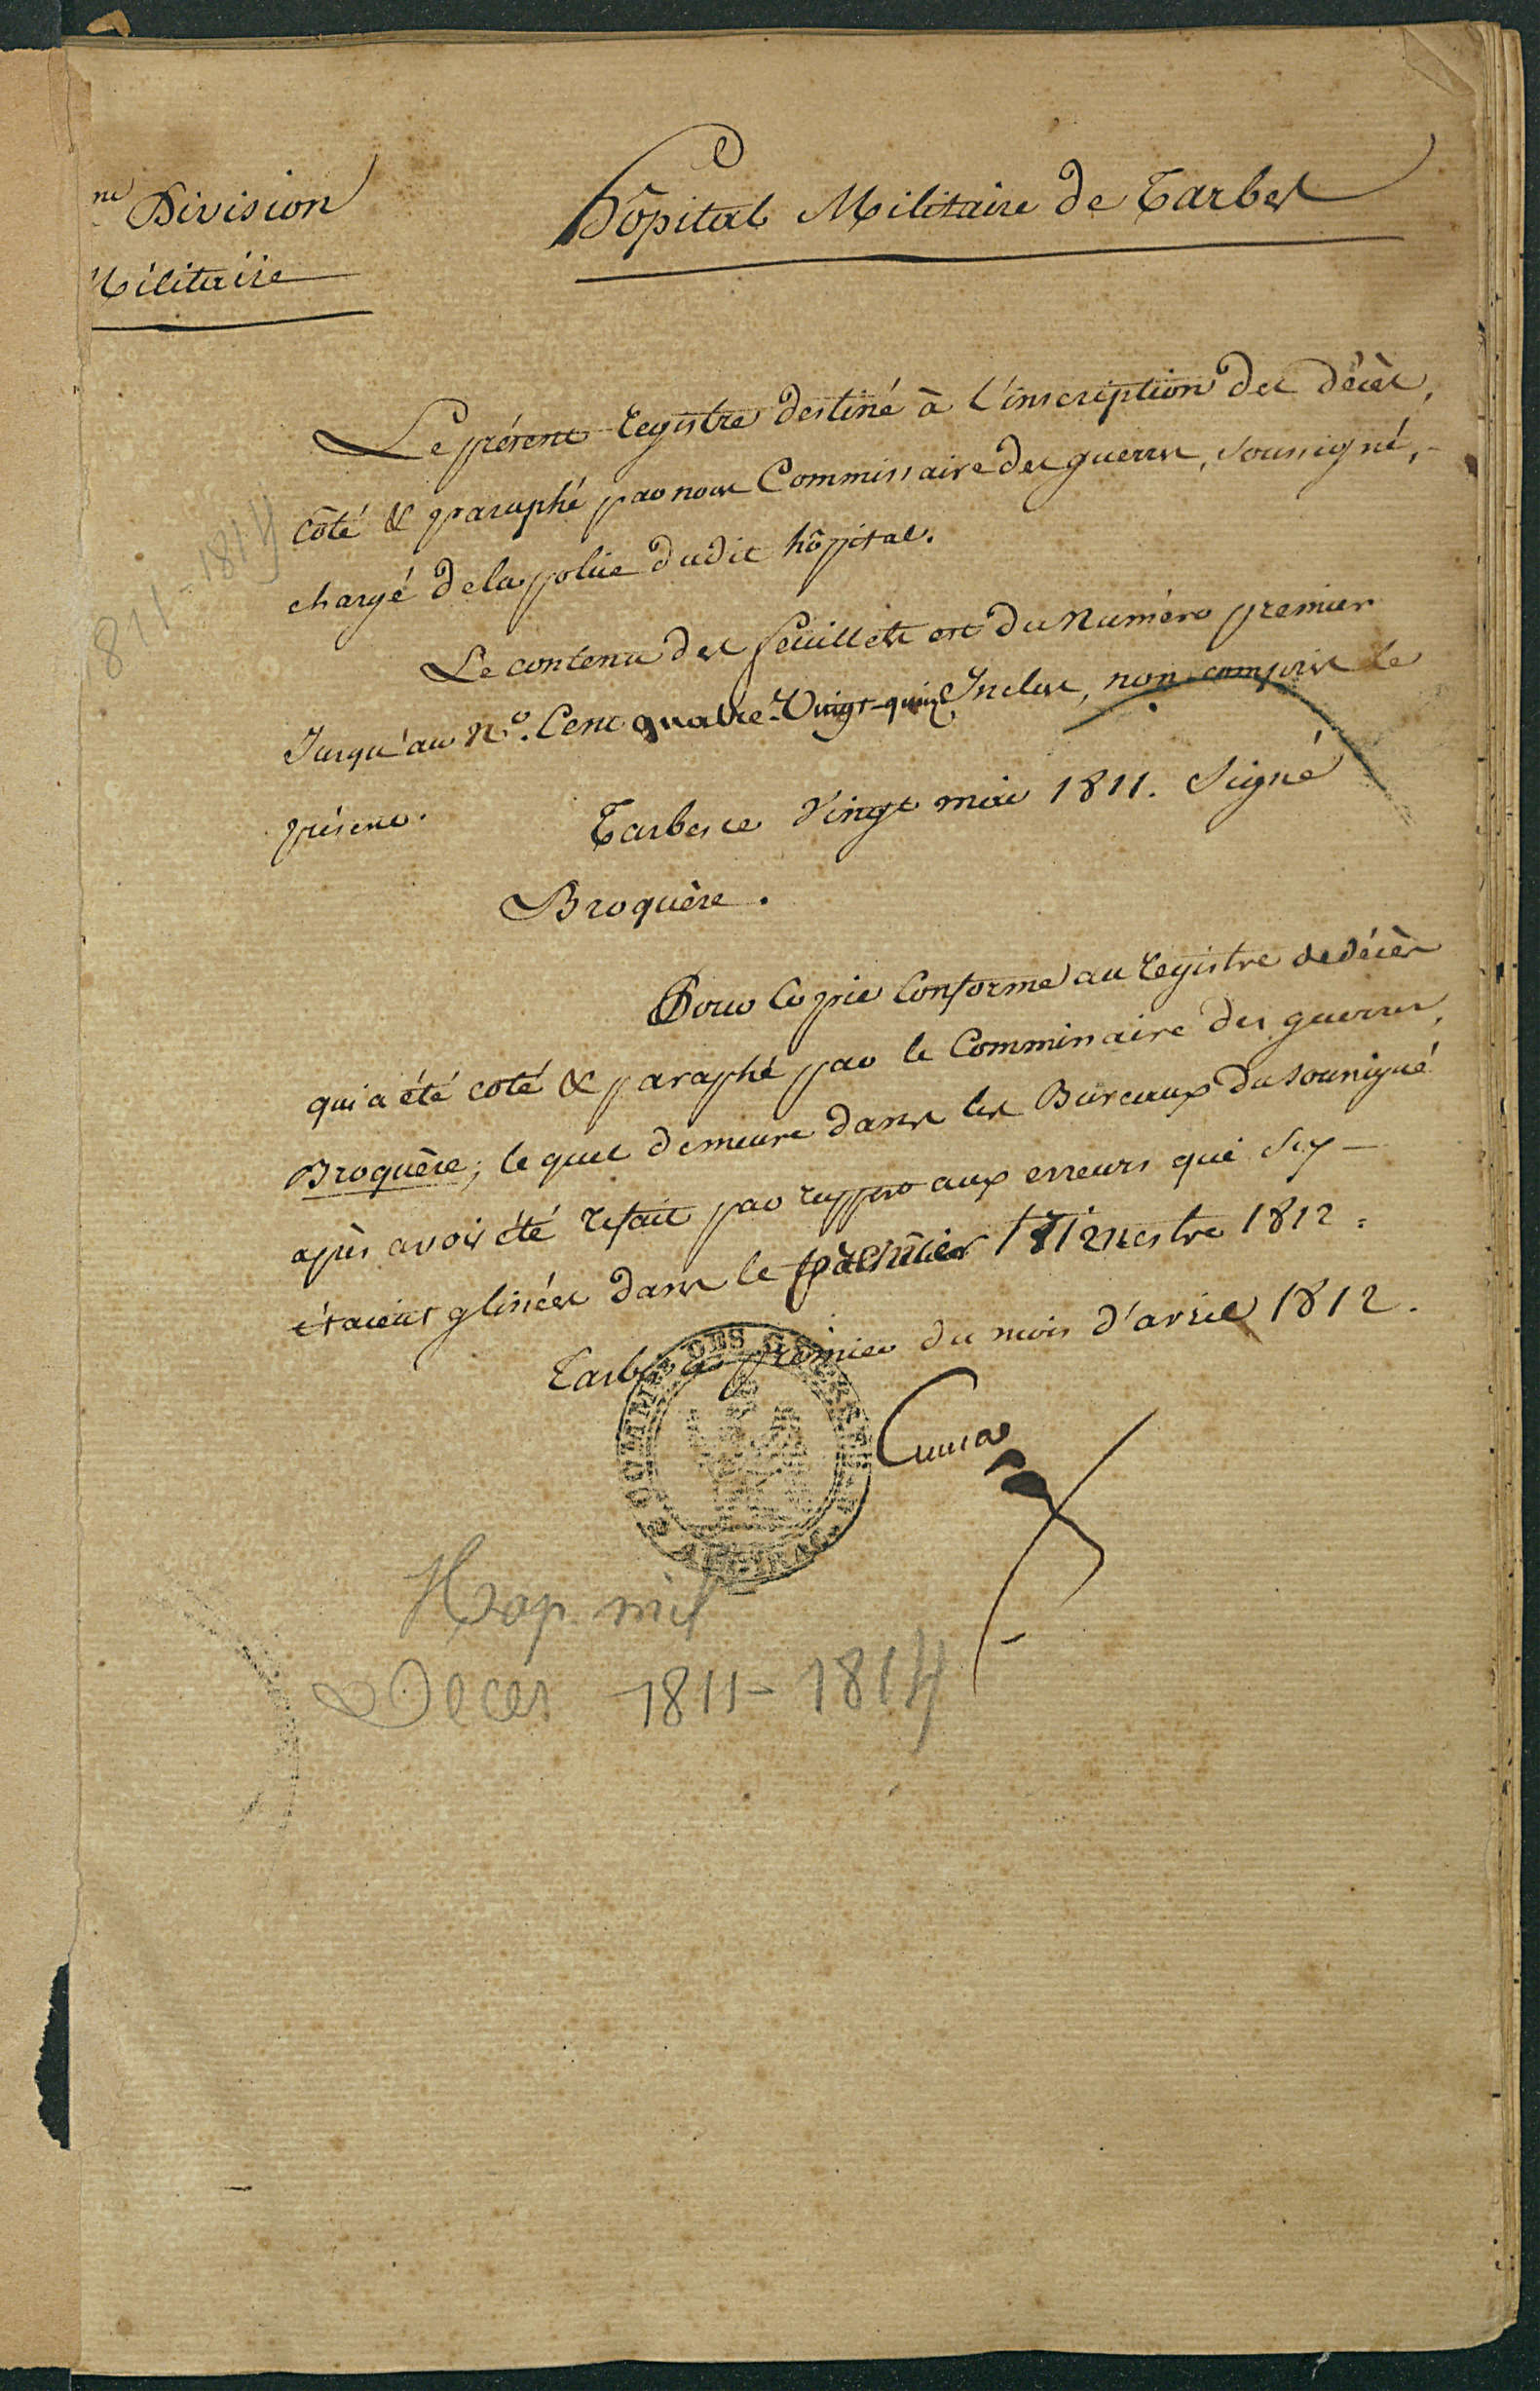 ne Division
Militaire
Hôpital Militaire de Tarbes
Le présent Registre destiné à l'inscription des décès,
côté & paraphé par nous Commissaire des guerres, soussigné,
chargé de la police dudit hôpital.
Le contenu des feuillets est du Numéro premier
Jusqu'au No. Cent quatre-Vingt-quinze Inclus, non compris le
présent.
Tarbes ce Vingt mai 1811. Signé
Broquère.
Pour Copie Conforme au Registre de décès
qui a été coté & paraphé par le Commissaire des guerres,
Broquère; le quel demeure dans les Bureaux du soussigné
après avoir été refait par rapport aux erreurs qui s'y
étaient glissées dans le premier trimestre 1812.
Tarbes ce premier du mois d'avril 1812.
1811-1814
Hop. mil
Deces 1811-1814